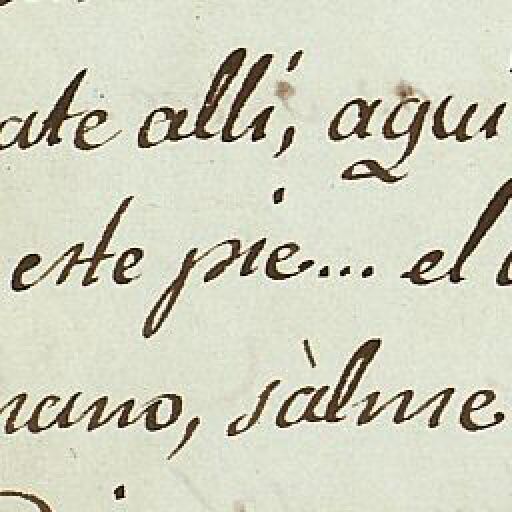 ate allí, aqui
este pie... el
mano, sàlme